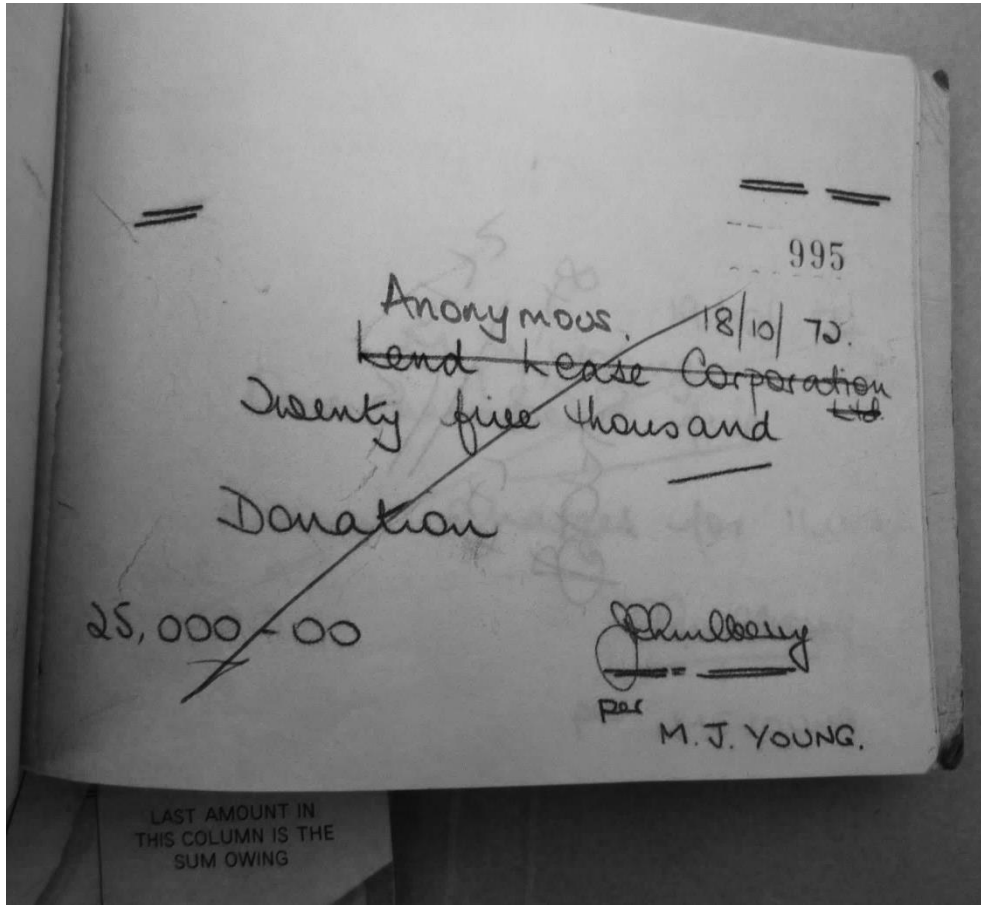 995
Anonymous. 18/10/72.
Lend Lease Corporation
Ltd.
Twenty five thousand
Donation
25,000-00
per
M. J. YOUNG.
LAST AMOUNT IN
THIS COLUMN IS THE
SUM OWING